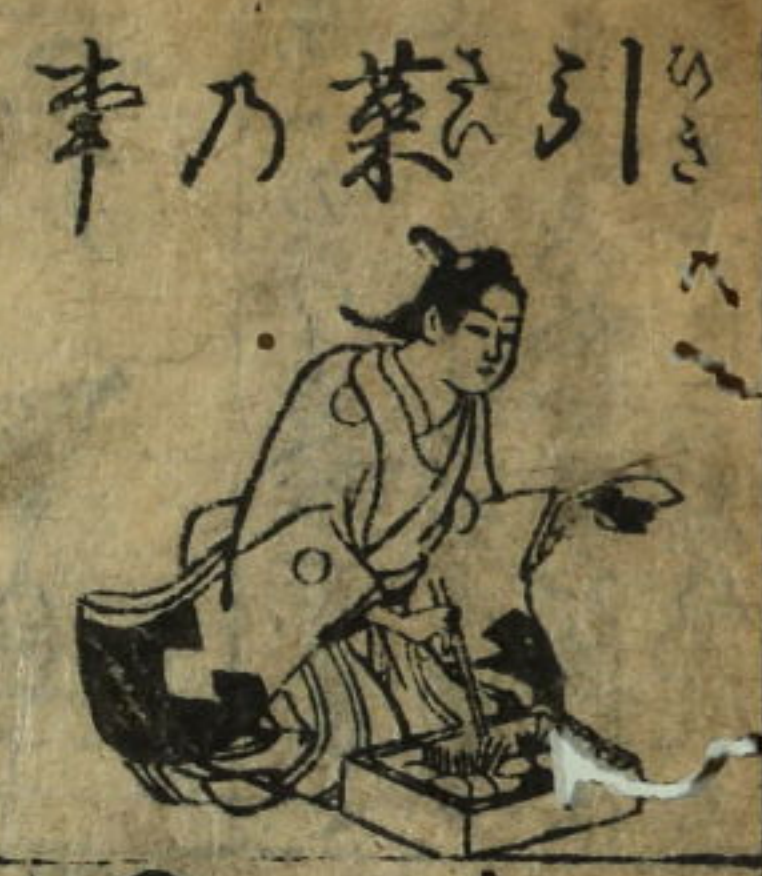 引菜乃事
ひき
さい